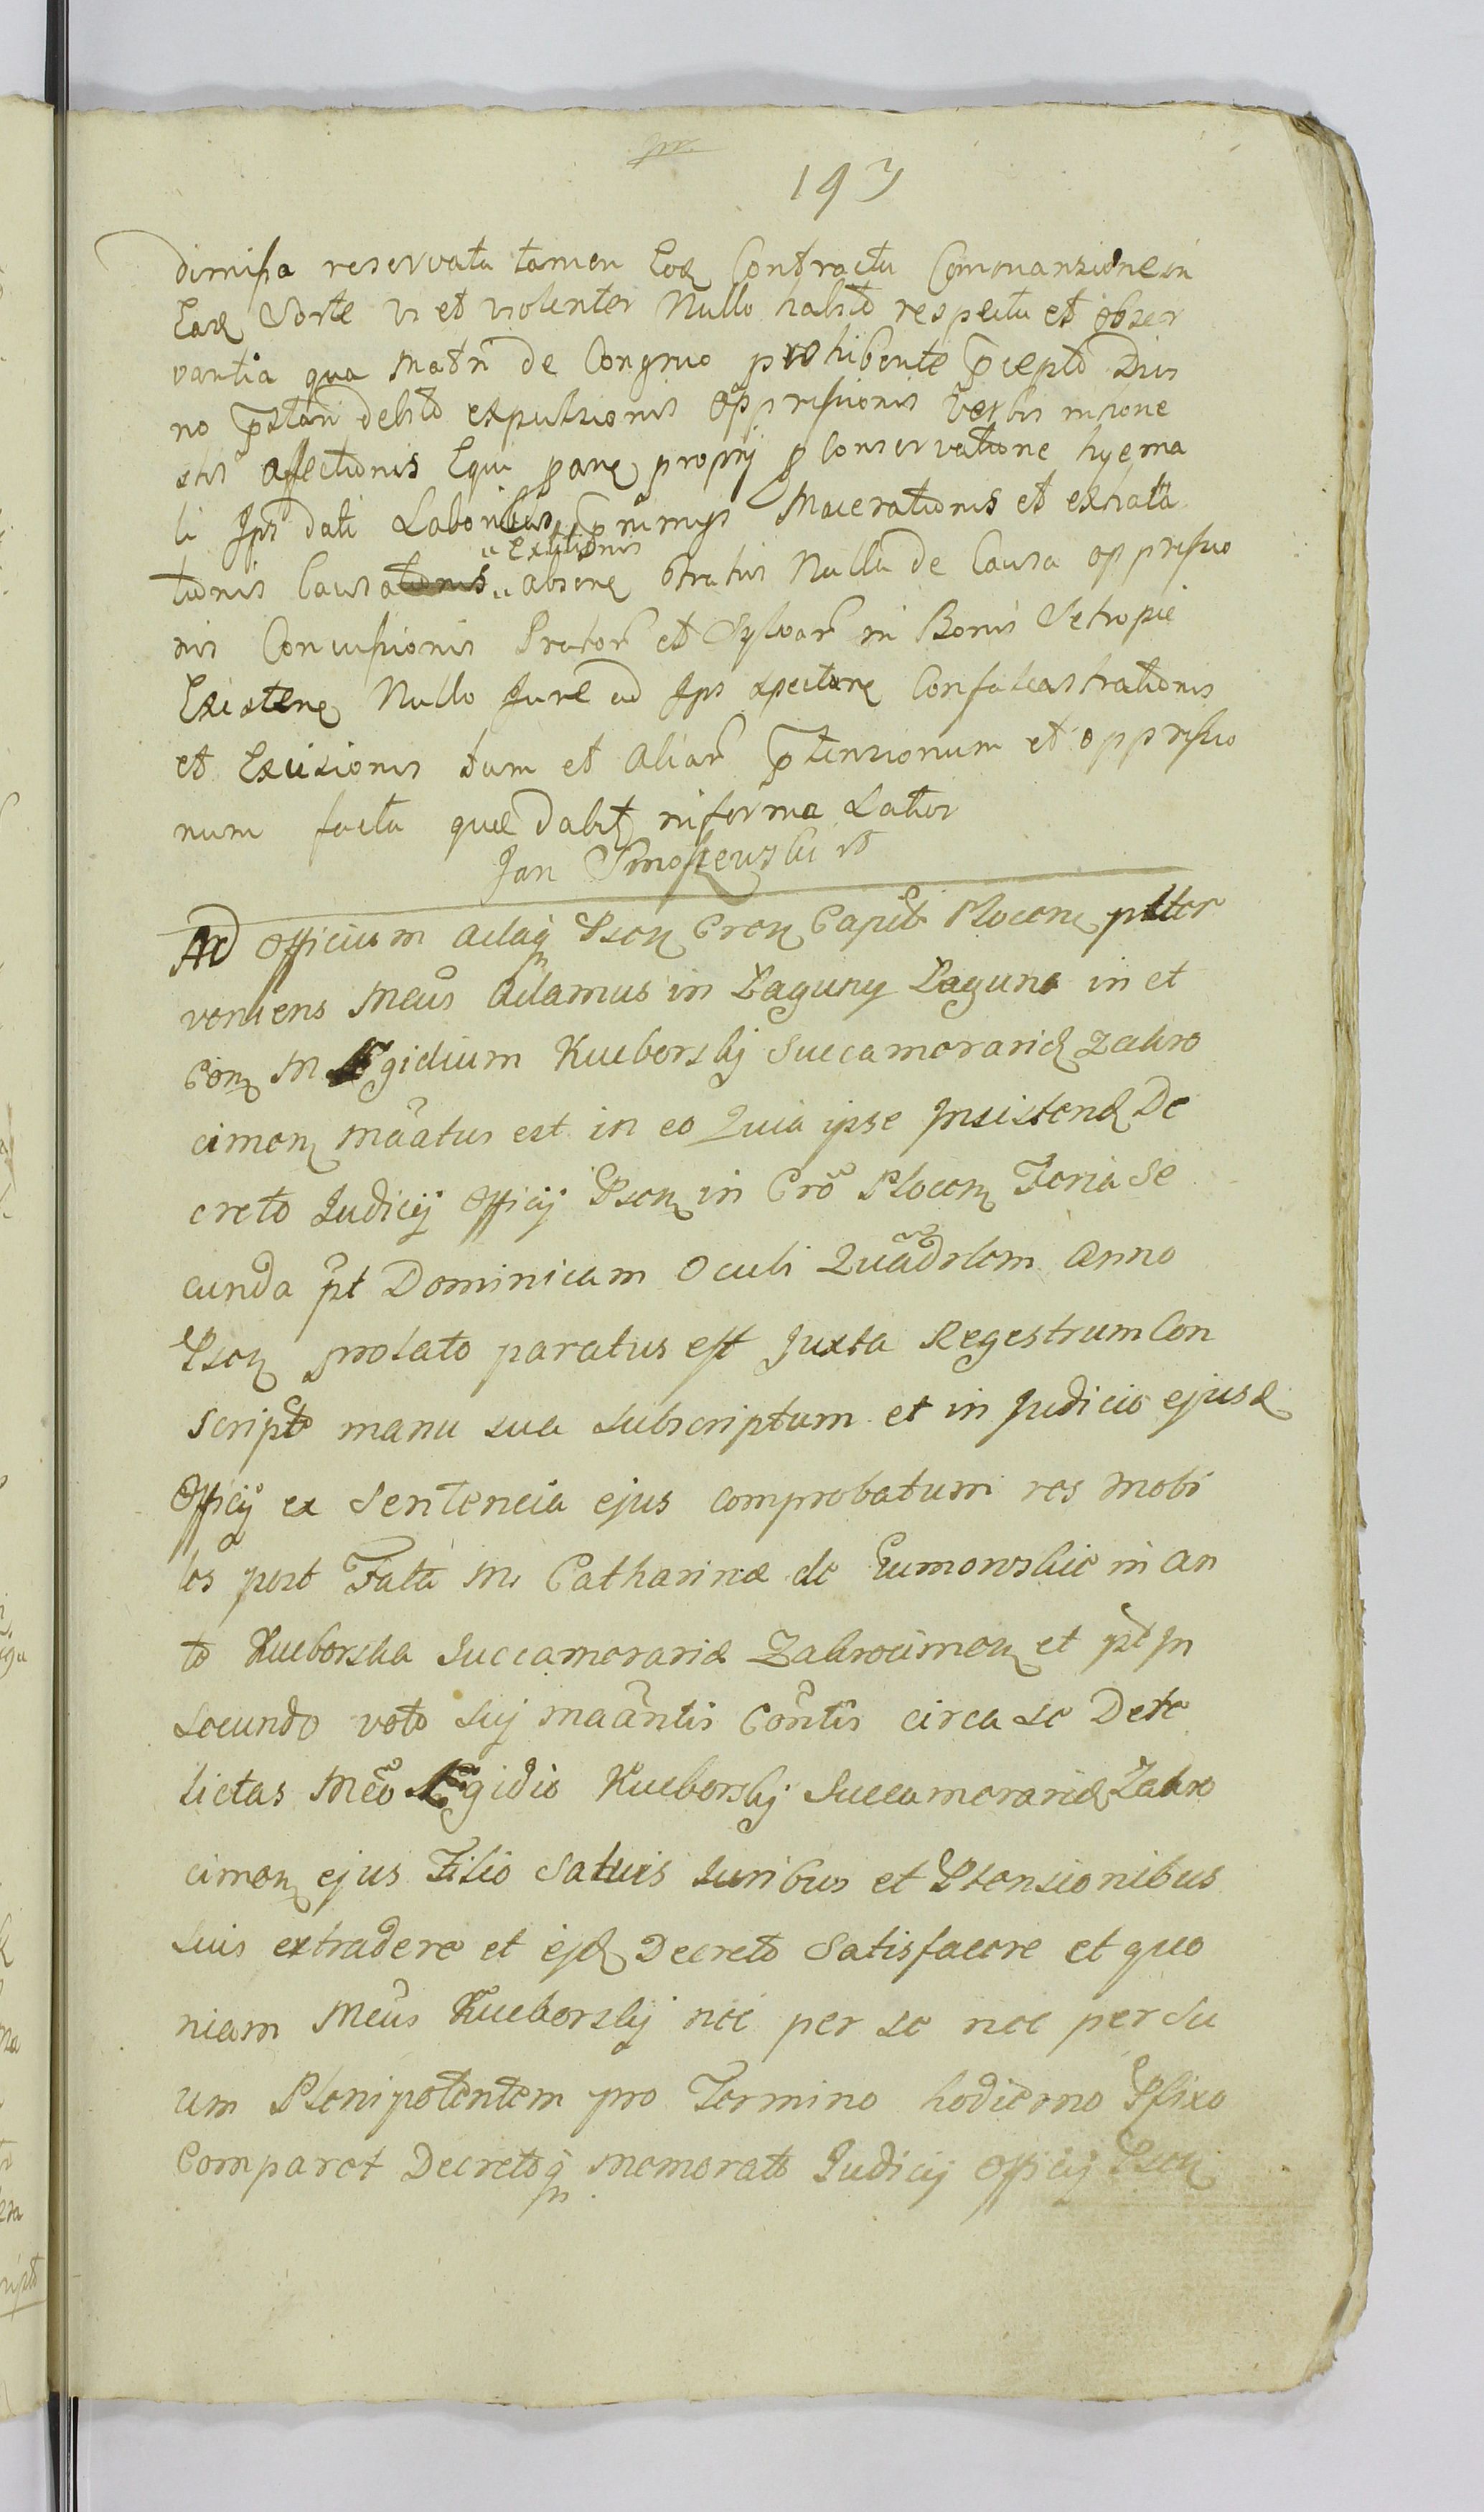 193
dimissa reservata tamen Eoq Contractu Commansione in
Eaq Sorte vi et violenter Nullo habito respectu et obser
vantia qua Matri de Congruo prohibente pcepto Divi
no pstari debito expulsionis Oppressionis verbis inhone
stis affectionis Equi propry p Conservatione hyema
li Jpi dati Laboribus nimys Macerationis et exhala
tionis Causa extitionis absque Nulla de Causa oppressio
nis Concussionis Prator et Sylvar in Bonis Setropie
Existen Nullo Jure ad Jps spectan Confalcastrationis
et Excisionis tum et Aliar ptensionum et oppressio
num facta que dabit informa Latior
Jan Smoszewski
Ad Officium Actaq Psen Cren Capit Plocen pltter
veniens Mcus Adamus in Laguny Laguna in et
Con M Ægidium Kucborskj Succamorarid Zakro
cimen maatus est in eo Quia ipse Jnsistend De
creto Judicij Officij Psen in Cro Plocen Feria Se
cunda pt Dominicam Oculi Quadrlem Anno
Psen prolato paratus est Juxta Regestrum Con
script manu sua subscriptum et in Judicio ejusd
Officij ex Sentencia ejus comprobatum res mobi
les post Fata M Catharinæ de Gumowskie in an
te Kucborska Succamoraria Zakrocimen et pt Jn
secundo voto Suj maantis Contis circa se Dere
lictas Mco Ægidio Kucborskj Succamorarid Zakro
cimen ejus Filio Salvis Juribus et Ptensionibus
suis extradere et ejd Decreto Satisfacere et quo
niam Mcus Kucborskj nec per se nec per Su
um Plenipotentem pro Termino hodierno Pfixo
Comparet Decretoq memorato Judicij Officij Psen